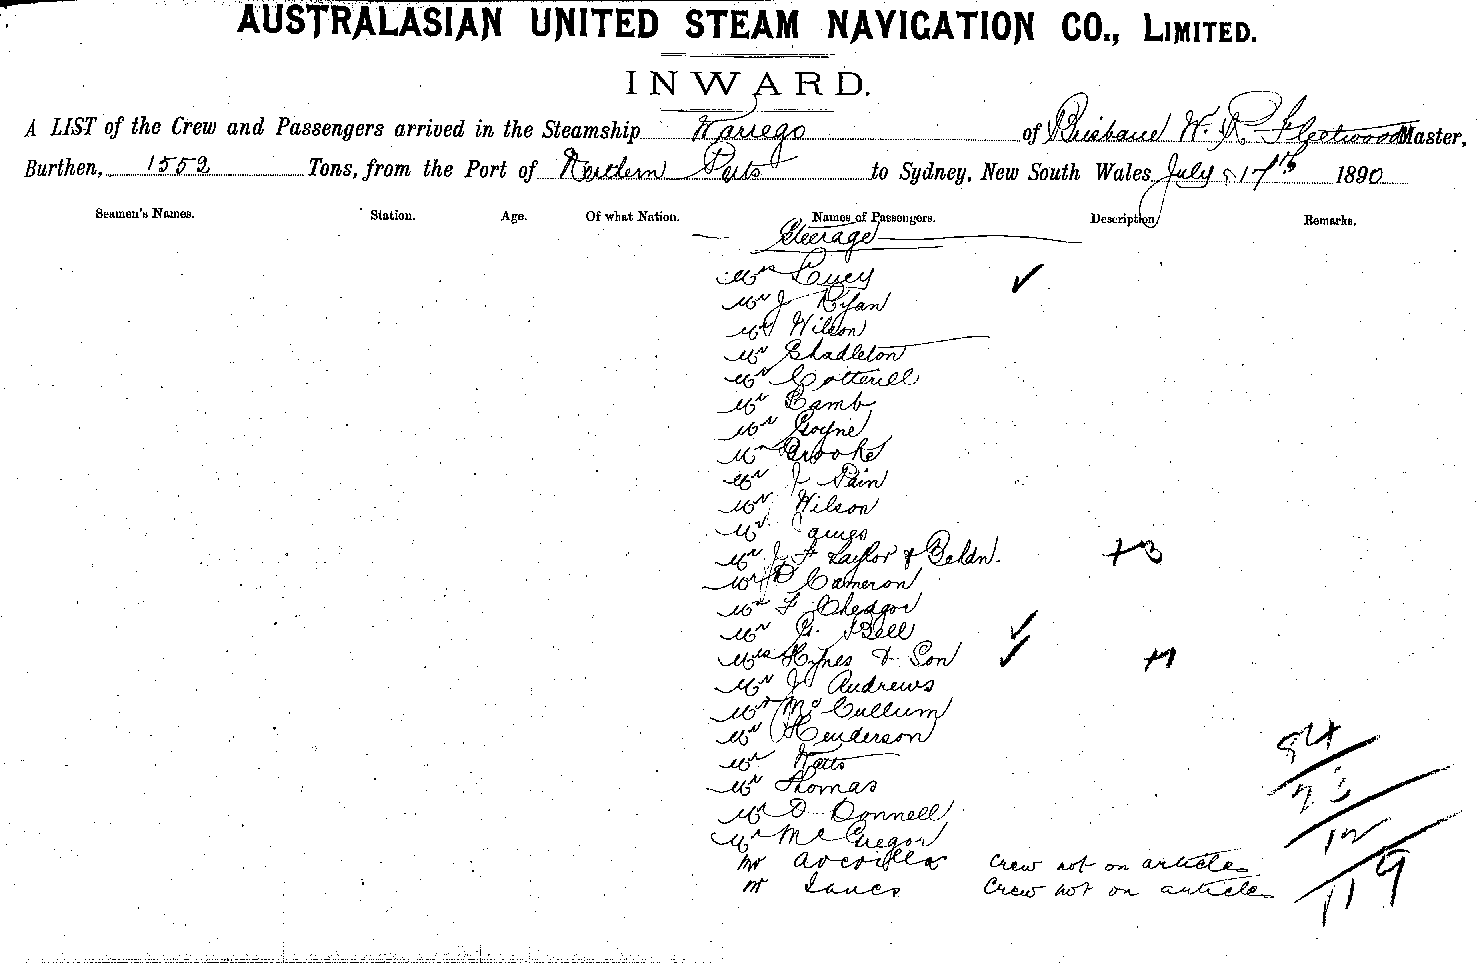 AUSTRALASIAN UNITED STEAM NAVIGATION CO., LIMITED.
INWARD.
A LIST of the Crew and Passengers arrived in the Steamship Warrego of Brisbane W. R. Fleetwood Master,
Burthen, 1552 Tons, from the Port of Northern Ports to Sydney, New South Wales July 17th 1890
Seamen's Names. Station. Age. Of what Nation. Names of Passengers. Description Remarks.
Steerage
Mrs Lucy ✓
Mr J Ryan
Mr Wilson
Mr Chadleton
Mr Cotterill
Mr Lamb
Mr Goyne
Mr Brooke
Mr J Pain
Mr Wilson
Mr James
Mr J F Taylor & +3
Mr D Cameron
Mr F Chedgor
Mr G. Bell ✓
Mrs Hynes & Son ✓ +1
Mr J Andrews
Mr McCullum
Mr Henderson
Mr Watts
Mr Thomas
Mr D Donnell
Mr McGregor
Mr Crew not on articles
Mr Crew not on article
94
12
119